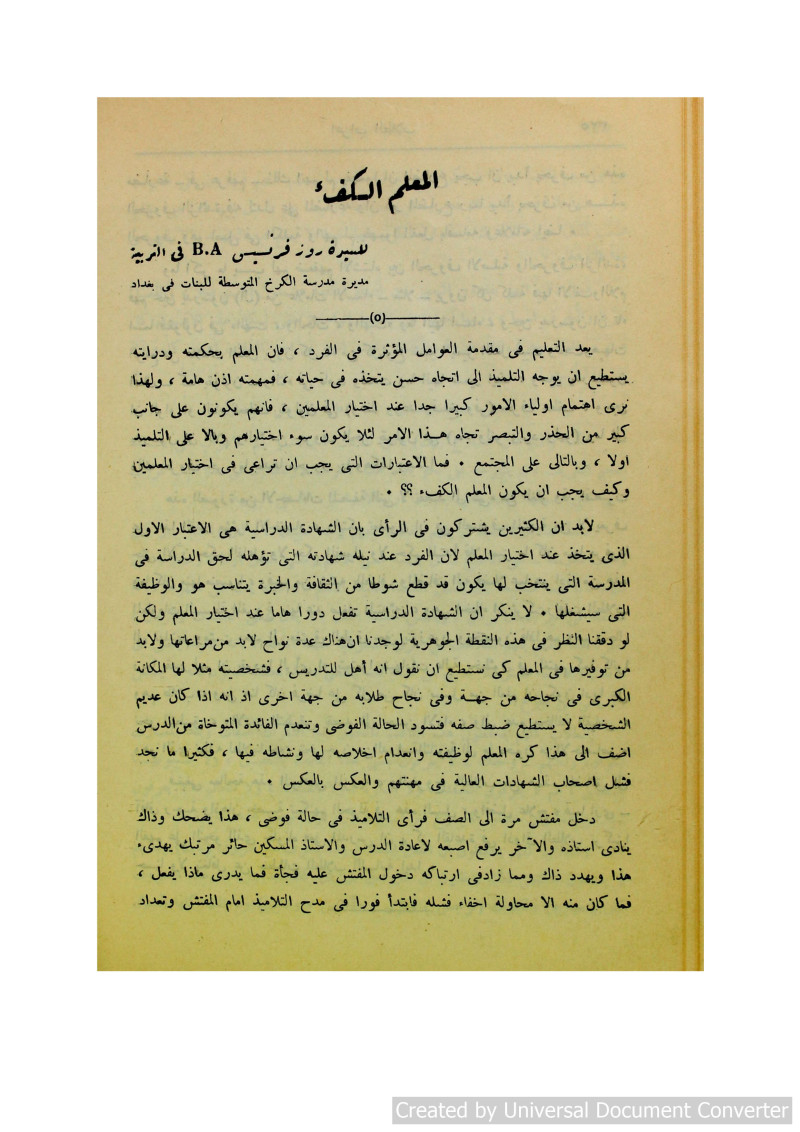 المعلم الكفء
للسيدة روز فرنسيس B.A في التربية
مديرة مدرسة الكرخ المتوسطة للبنات في بغداد
(o)
يعد التعليم في مقدمة العوامل المؤثرة في الفرد ، فان المعلم بحكمته ودرايته
يستطيع ان يوجه التلميذ الى اتجاه حسن يتخذه في حياته ، فمهمته اذن هامة ، ولهذا
نرى اهتمام اولياء الامور كبيرا جدا عند اختيار المعلمين ، فانهم يكونون على جانب
كبير من الحذر والتبصر تجاه هـذا الامر لئلا يكون سوء اختيارهم وبالا على التلميذ
اولا ، وبالتالى على المجتمع . فما الاعتبارات التى يجب ان تراعى في اختيار المعلمين
وكيف يجب ان يكون المعلم الكفء ؟؟ .
لابد ان الكثيرين يشتركون في الرأى بان الشهادة الدراسية هي الاعتبار الاول
الذى يتخذ عند اختيار المعلم لان الفرد عند نيله شهادته التى تؤهله لحق الدراسة في
المدرسة التى ينتخب لها يكون قد قطع شوطا من الثقافة والخبرة يتناسب هو والوظيفة
التى سيشغلها . لا ينكر ان الشهادة الدراسية تفعل دورا هاما عند اختيار المعلم ولكن
لو دققنا النظر في هذه النقطة الجوهرية لوجدنا ان هناك عدة نواح لابد من مراعاتها ولابد
من توفيرها في المعلم كى نستطيع ان نقول انه أهل للتدريس ، فشخصيته مثلا لها المكانة
الكبرى في نجاحه من جهـة وفى نجاح طلابه من جهة اخرى اذ انه اذا كان عديم
الشخصية لا يستطيع ضبط صفه فتسود الحالة الفوضى وتنعدم الفائدة المتوخاة من الدرس
اضف الى هذا كره المعلم لوظيفته وانعدام اخلاصه لها ونشاطه فيها ، فكثيرا ما نجد
فشل اصحاب الشهادات العالية في مهنتهم والعكس بالعكس .
دخل مفتش مرة الى الصف فرأى التلاميذ في حالة فوضى ، هذا يضحك وذاك
ينادى استاذه والآخر يرفع اصبعه لاعادة الدرس والاستاذ المسكين حائر مرتبك يهدىء
هذا ويهدد ذاك ومما زاد في ارتباكه دخول المفتش عليه فجأة فما يدرى ماذا يفعل ،
فما كان منه الا محاولة اخفاء فشله فابتدأ فورا في مدح التلاميذ امام المفتش وتعداد
Created by Universal Document Converter